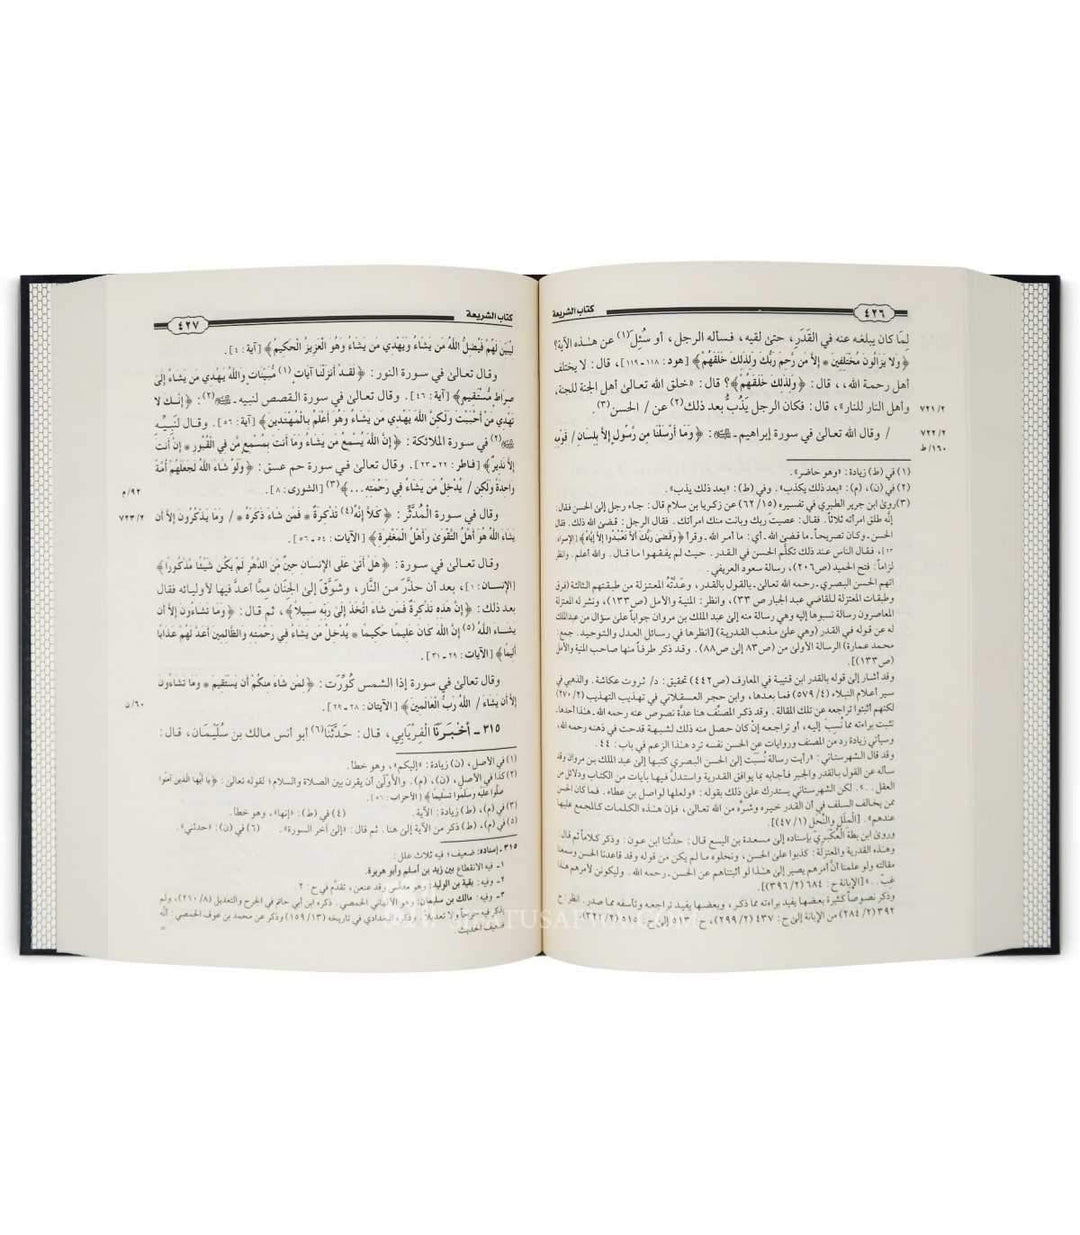 ٤٢٦
كتاب الشريعة
لِمَا كان يبلغه عنه في القَدَر، حتىٰ لقيه، فسأله الرجل، أو سُئِلَ(١) عن هذه الآية؟
﴿وَلَا يَزَالُونَ مُخْتَلِفِينَ * إِلَّا مَن رَّحِمَ رَبُّكَ وَلِذَٰلِكَ خَلَقَهُمْ﴾ [هود: ١١٨ ـ ١١٩]، قال: لا يختلف
أهل رحمة الله،، قال: ﴿وَلِذَٰلِكَ خَلَقَهُمْ﴾؟ قال: «خلق الله تعالىٰ أهل الجنة للجنة،
وأهل النار للنار»، قال: فكان الرجل يَذُبُّ بعد ذلك(٢) عن / الحسن(٣)
٧٢١/٢
/ وقال الله تعالىٰ في سورة إبراهيم ـ ﷺ: ﴿وَمَا أَرْسَلْنَا مِن رَّسُولٍ إِلَّا بِلِسَانِ / قَوْمِهِ
٧٢٢/٢
١٦٠/ط
(١) في (ط) زيادة: «وهو حاضر».
(٢) في (ن)، (م): «بعد ذلك يكذب». وفي (ط): «بعد ذلك يذب».
(٣) روىٰ ابن جرير الطبري في تفسيره (٦٢/١٥) عن زكريا بن سلام قال: جاء رجل إلى الحسن فقال:
إنه طلق امرأته ثلاثاً. فقال: عصيت ربك وبانت منك امرأتك. فقال الرجل: قضىٰ الله ذلك.
الحسن ـ وكان تصريحاً ـ ما قضىٰ الله ـ أي: ما أمر الله ـ وقرأ ﴿وَقَضَىٰ رَبُّكَ أَلَّا تَعْبُدُوا إِلَّا إِيَّاهُ﴾ [الإسراء:
، فقال الناس عند ذلك تكلَّم الحسن في القدر. حيث لم يفقهوا ما قال. والله أعلم. وانظر
لزاماً: فتح الحميد (ص٢٠٦)، رسالة سعود العريفي.
اتهم الحسن البصري ـ رحمه الله تعالىٰ ـ بالقول بالقدر، وعدَّتْهُ المعتزلة من طبقتهم الثالثة (فرق
وطبقات المعتزلة للقاضي عبد الجبار ص٣٣)، وانظر: المنية والأمل (ص١٣٣)، ونشر له المعتزلة
المعاصرون رسالة نسبوها إليه وهي رسالة منه إلىٰ عبد الملك بن مروان جواباً علىٰ سؤال من عبدالملك
له عن قوله في القدر (وهي علىٰ مذهب القدرية) [انظرها في رسائل العدل والتوحيد. جمع:
محمد عمارة) الرسالة الأولىٰ من (ص٨٣ إلىٰ ص٨٨). وقد ذكر طرفاً منها صاحب المنية والأمل
(ص١٣٣)].
وقد أشار إلىٰ قوله بالقدر ابن قتيبة في المعارف (ص٤٤٢) تحقيق: د/ ثروت عكاشة. والذهبي في
سير أعلام النبلاء (٥٧٩/٤) فما بعدها، وابن حجر العسقلاني في تهذيب التهذيب (٢٧٠/٢)
لكنهم أثبتوا تراجعه عن تلك المقالة. وقد ذكر المصنِّف هنا عدَّة نصوص عنه رحمه الله ـ هذا أحدها،
تثبت براءته مما نُسِبَ إليه، أو تراجعه إنْ كان حصل منه ذلك لشبهة قدحت في ذهنه رحمه الله،
وسيأتي زيادة رد من المصنف وروايات عن الحسن نفسه ترد هذا الزعم في باب: ٤٤
وقد قال الشهرستاني: «رأيت رسالة نُسبَت إلى الحسن البصري كتبها إلىٰ عبد الملك بن مروان وقد
سأله عن القول بالقدر والجبر فأجابه بما يوافق القدرية واستدلَّ فيها بآيات من الكتاب ودلائل من
العقل. ..». لكن الشهرستاني يستدرك علىٰ ذلك بقوله: «ولعلها لواصل بن عطاء. فما كان الحسن
ممن يخالف السلف في أن القدر خيره وشرَّه من الله تعالىٰ، فإن هذه الكلمات كالمجمع عليها
عندهم». [المِلَل والنِّحَل (٤٧/١)].
وروىٰ ابن بطة العُكْبَرِيّ بإسناده إلىٰ مسعدة بن اليسع قال: حدثنا ابن عون: وذكر كلاماً ثم قال:
وهذه القدرية والمعتزلة: كذبوا علىٰ الحسن، ونحلوه ما لم يكن من قوله وقد قاعدنا الحسن وسمعنا
مقالته ولو علمنا أنَّ أمرهم يصير إلىٰ هذا
[الإبانة ح: ٦٨٤ (٣٩٦/٢)].
وذكر نصوصاً كثيرة بعضها يفيد براءته مما ذكر، وبعضها يفيد تراجعه وتأسفه مما صدر. انظر: ح
٣٩٢ (٢٨٤/٢) من الإبانة إلىٰ ح: ٤٣٧ (٢٩٩/٢)، ح ٥١٣ إلى ح: ٥١٥ (٢٢٢/٢).
٤٢٧
كتاب الشريعة
لِيُبَيِّنَ لَهُمْ فَيُضِلُّ اللَّهُ مَن يَشَاءُ وَيَهْدِي مَن يَشَاءُ وَهُوَ الْعَزِيزُ الْحَكِيمُ﴾ [آية: ٤].
وقال تعالىٰ في سورة النور: ﴿لَقَدْ أَنزَلْنَا آيَاتٍ(١) مُّبَيِّنَاتٍ وَاللَّهُ يَهْدِي مَن يَشَاءُ إِلَىٰ
صِرَاطٍ مُّسْتَقِيمٍ﴾ [آية: ٤٦]. وقال تعالىٰ في سورة القصص لنبيه ـ ﷺ(٢): ﴿إِنَّكَ لَا
تَهْدِي مَنْ أَحْبَبْتَ وَلَٰكِنَّ اللَّهَ يَهْدِي مَن يَشَاءُ وَهُوَ أَعْلَمُ بِالْمُهْتَدِينَ﴾ [آية: ٥٦]. وقال لنَبيِّه
ﷺ(٢) في سورة الملائكة: ﴿إِنَّ اللَّهَ يُسْمِعُ مَن يَشَاءُ وَمَا أَنتَ بِمُسْمِعٍ مَّن فِي الْقُبُورِ * إِنْ أَنتَ
إِلَّا نَذِيرٌ﴾ [فاطر: ٢٢ ـ ٢٣]. وقال تعالىٰ في سورة حم عسق: ﴿وَلَوْ شَاءَ اللَّهُ لَجَعَلَهُمْ أُمَّةً
وَاحِدَةً وَلَٰكِن / يُدْخِلُ مَن يَشَاءُ فِي رَحْمَتِهِ...﴾(٣) [الشورى: ٨].
٩٢/م
وقال تعالىٰ في سورة الْمُدَّثِّر: ﴿كَلَّا إِنَّهُ(٤) تَذْكِرَةٌ * فَمَن شَاءَ ذَكَرَهُ * / وَمَا يَذْكُرُونَ إِلَّا أَن
٧٢٣/٢
يَشَاءَ اللَّهُ هُوَ أَهْلُ التَّقْوَىٰ وَأَهْلُ الْمَغْفِرَةِ﴾ [الآيات: ٥٤ ـ ٥٦].
وقال تعالىٰ في سورة: ﴿هَلْ أَتَىٰ عَلَى الْإِنسَانِ حِينٌ مِّنَ الدَّهْرِ لَمْ يَكُن شَيْئًا مَّذْكُورًا﴾
[الإنسان: ١]، بعد أن حذَّرَ من النَّار، وشَوَّقَ إلىٰ الجِنَان مِمَّا أعدَّ فيها لأوليائه فقال
بعد ذلك: ﴿إِنَّ هَٰذِهِ تَذْكِرَةٌ فَمَن شَاءَ اتَّخَذَ إِلَىٰ رَبِّهِ سَبِيلًا﴾، ثم قال: ﴿وَمَا تَشَاءُونَ إِلَّا أَن
يَشَاءَ اللَّهُ(٥) إِنَّ اللَّهَ كَانَ عَلِيمًا حَكِيمًا * يُدْخِلُ مَن يَشَاءُ فِي رَحْمَتِهِ وَالظَّالِمِينَ أَعَدَّ لَهُمْ عَذَابًا
أَلِيمًا﴾ [الآيات: ٢٩ ـ ٣١].
وقال تعالىٰ في سورة إذا الشمس كُوِّرَتْ: ﴿لِمَن شَاءَ مِنكُمْ أَن يَسْتَقِيمَ * وَمَا تَشَاءُونَ
إِلَّا أَن يَشَاءَ / اللَّهُ رَبُّ الْعَالَمِينَ﴾ [الآيتان: ٢٨ ـ ٢٩].
٦٠/ن
٣١٥ ـ أَخْبَرَنَا الْفِرْيَابِي، قال: حَدَّثَنَا(٦) أبو أنس مالك بن سُلَيْمَان، قال:
(١) في الأصل، (ن) زيادة: «إليكم»، وهو خطأ.
(٢) كذا في الأصل، (ن)، (م). والأَوْلىٰ أن يقرن بين الصلاة والسلام؛ لقوله تعالىٰ: ﴿يَا أَيُّهَا الَّذِينَ آمَنُوا
صَلُّوا عَلَيْهِ وَسَلِّمُوا تَسْلِيمًا﴾ [الأحزاب: ٥٦].
(٣) في (م)، (ط) زيادة: الآية.
(٤) في (ط): «إنها»، وهو خطأ.
(٥) في (م)، (ط) ذكر من الآية إلى هنا. ثم قال: «إلىٰ آخر السورة».
(٦) في (ن): «حدثني».
٣١٥ ـ إسناده: ضعيف؛ فيه ثلاث علل:
١ ـ فيه الانقطاع بين زيد بن أسلم وأبو هريرة.
٢ ـ وفيه: بقية بن الوليد: وهو مدلِّس وقد عنعن، تقدَّم في ح: ٢
٣ ـ وفيه: مالك بن سليمان: وهو الألهاني الحمصي. ذكره ابن أبي حاتم في الجرح والتعديل (٢١٠/٨)، ولم
يذكر فيه جرحاً ولا تعديلاً. وقال البغدادي في تاريخه (١٥٩/١٣) وذكر عن محمد بن عوف الحمصي أنه:
ضعيف الحديث.